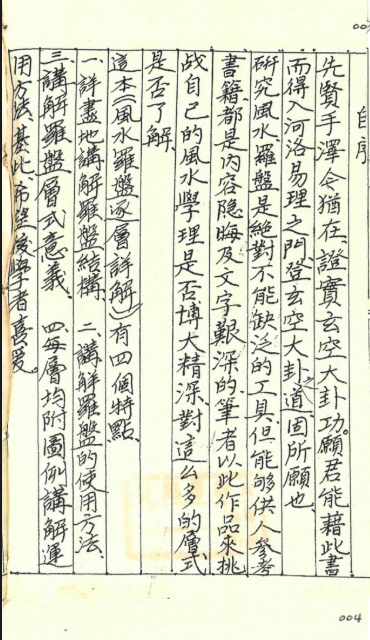 自序
先賢手澤今猶在、證實玄空大卦功。願君能藉此書
而得入河洛易理之門、登玄空大卦之道、固所願也、
研究風水羅盤是絕對不能缺乏的工具、但能够供人參考
書籍、都是內容隐晦及文字艱深的筆者以此作品來挑
战自己的風水學理是否博大精深、對這么多的層式
是否了解、
這本《風水羅盤逐層詳解》有四個特點、
一、詳盡地講解羅盤結構、 二、講解羅盤的使用方法、
三、講解羅盤層式意義、 四、每層均附圖例講解運
用方法、基此、希望後學者喜爱。
004